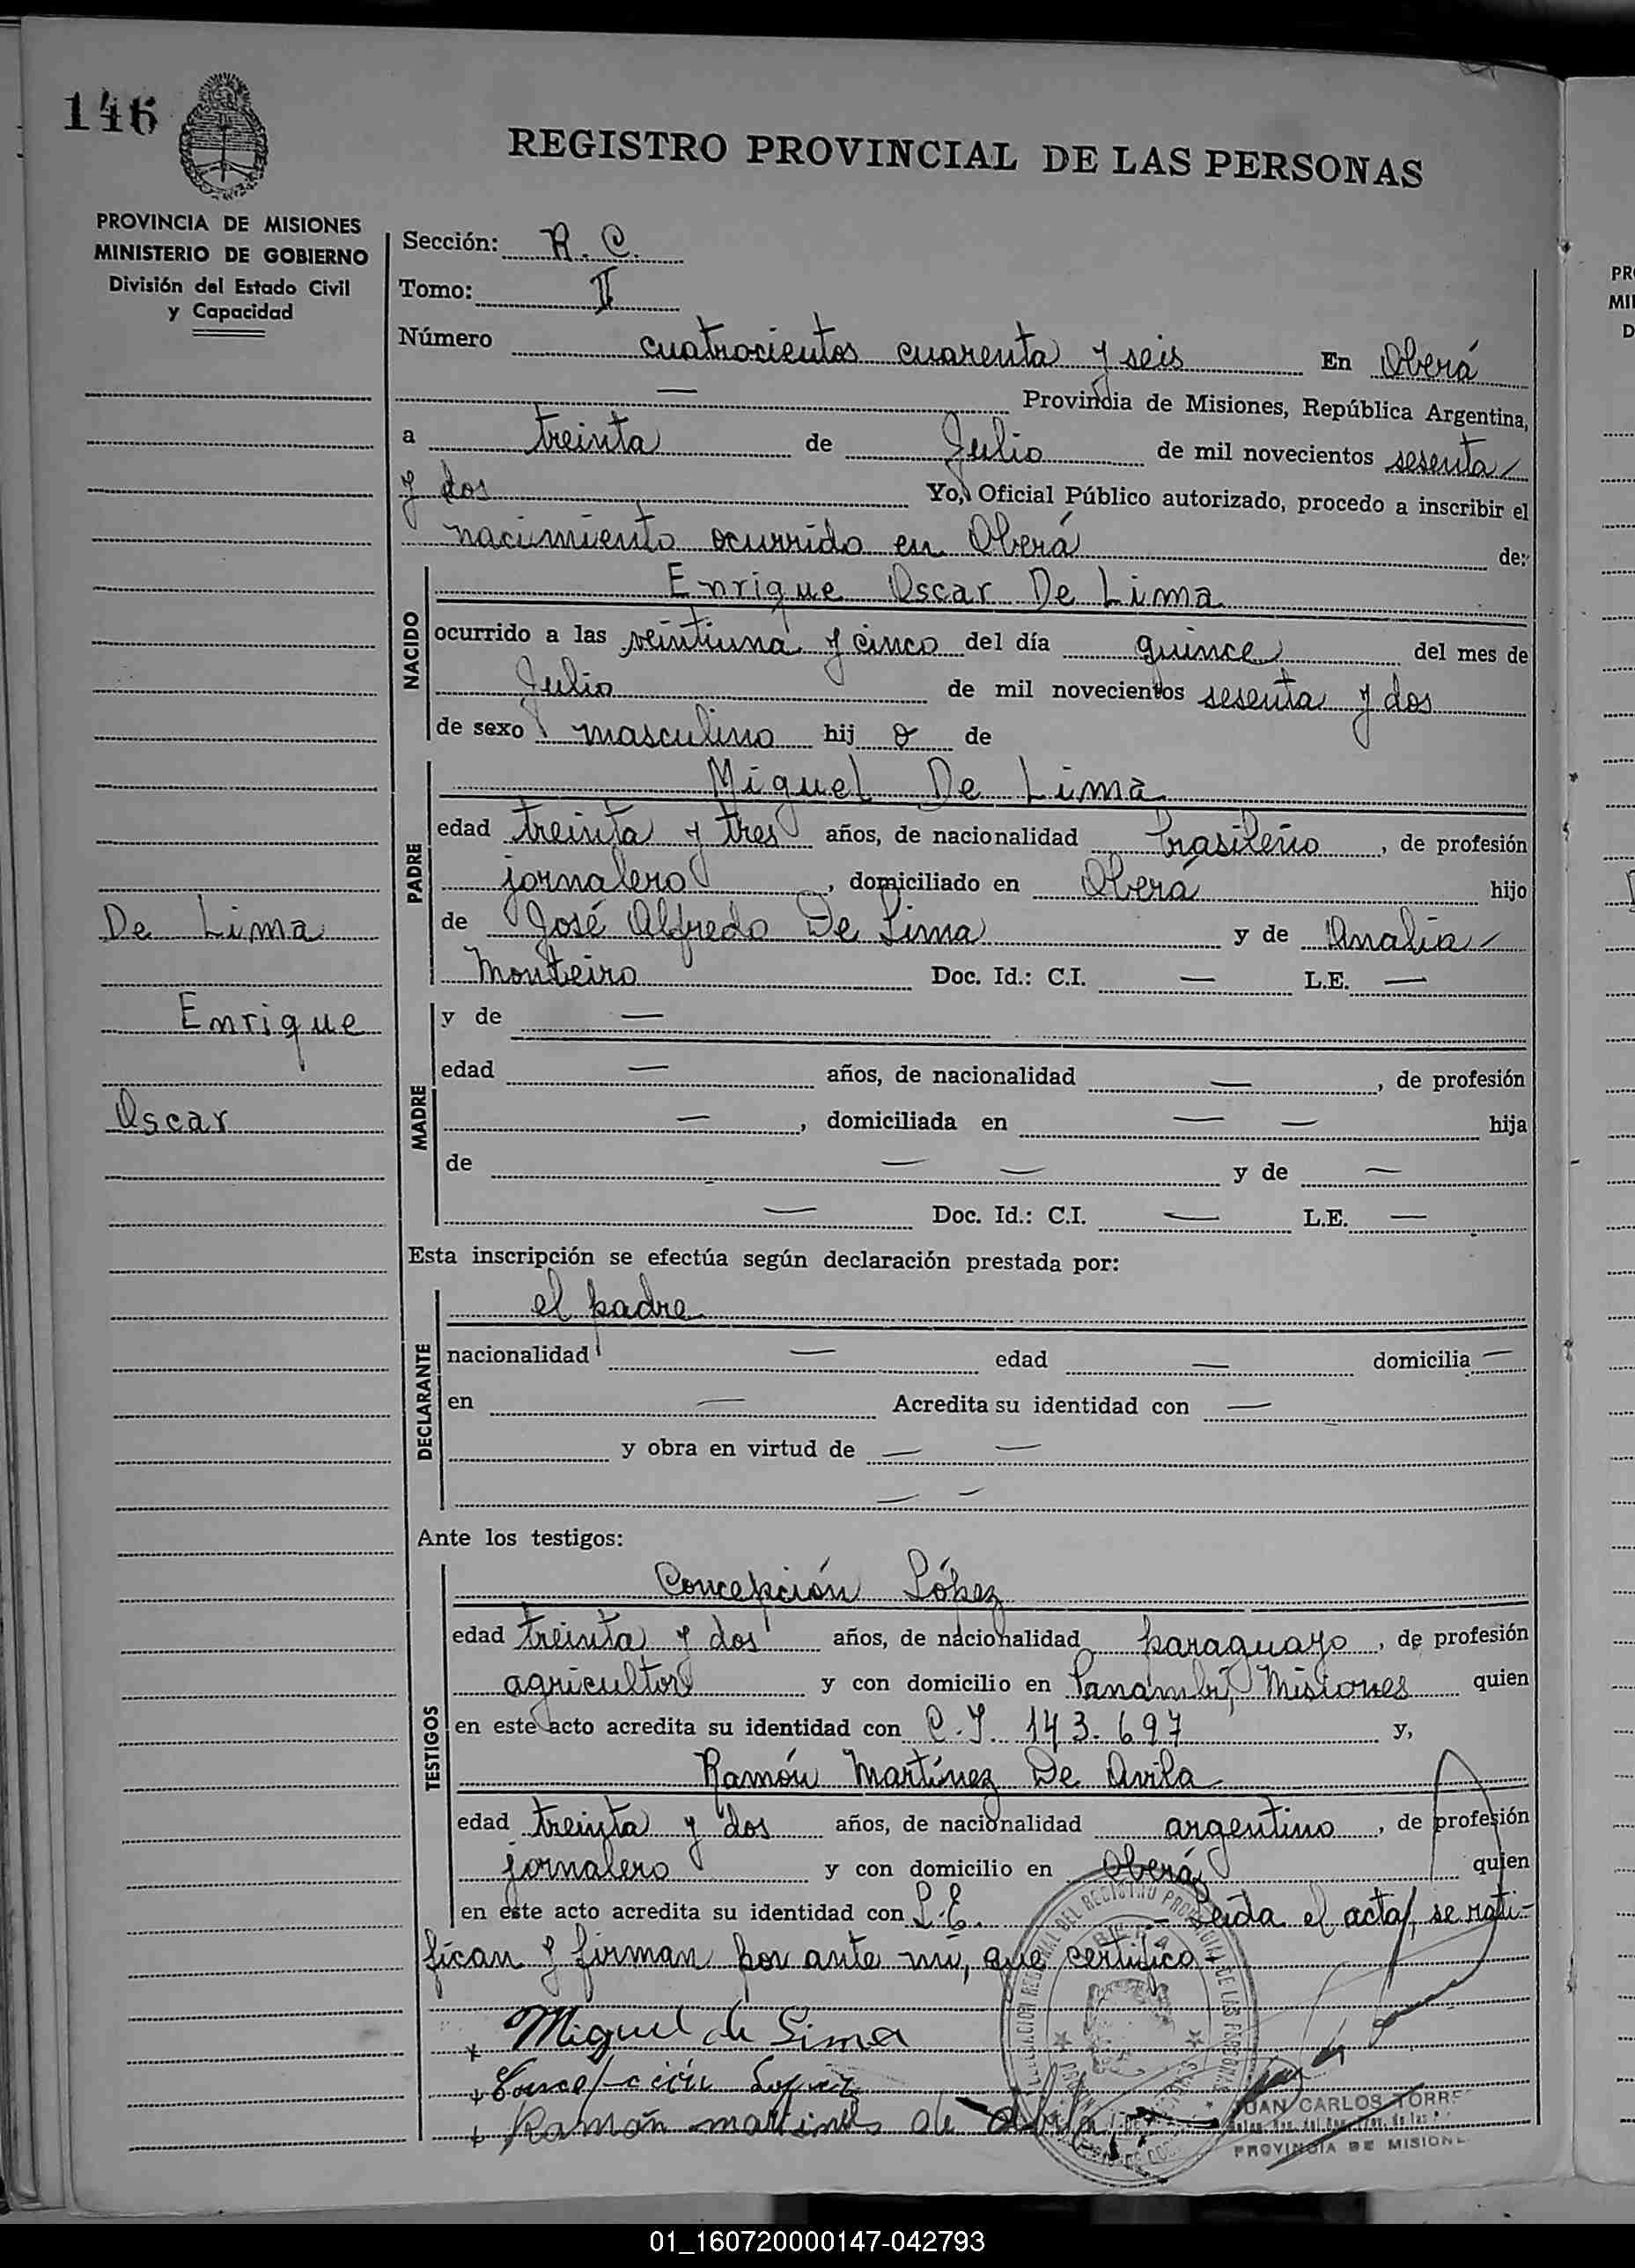 146
REGISTRO PROVINCIAL DE LAS PERSONAS
PROVINCIA DE MISIONES
MINISTERIO DE GOBIERNO
División del Estado Civil
y Capacidad
De Lima
Enrique
Oscar
Sección: R. C.
Tomo: II
Número cuatrocientos cuarenta y seis En Oberá
— Provincia de Misiones, República Argentina,
a treinta de Julio de mil novecientos sesenta
y dos Yo, Oficial Público autorizado, procedo a inscribir el
nacimiento ocurrido en Oberá de:
NACIDO
Enrique Oscar De Lima
ocurrido a las veintiuna y cinco del día quince del mes de
Julio de mil novecientos sesenta y dos
de sexo masculino hij o de
PADRE
Miguel De Lima
edad treinta y tres años, de nacionalidad brasileño, de profesión
jornalero, domiciliado en Oberá hijo
de José Alfredo De Lima y de Analia
Monteiro Doc. Id.: C.I. — L.E. —
MADRE
y de —
edad — años, de nacionalidad —, de profesión
—, domiciliada en — — hija
de — — y de —
— Doc. Id.: C.I. — L.E. —
Esta inscripción se efectúa según declaración prestada por:
DECLARANTE
el padre
nacionalidad — edad — domicilia —
en — Acredita su identidad con —
y obra en virtud de — —
— —
Ante los testigos:
TESTIGOS
Concepción López
edad treinta y dos años, de nacionalidad paraguayo, de profesión
agricultor y con domicilio en Panambí, Misiones quien
en este acto acredita su identidad con C.I. 143.697 y,
Ramón Martínez De Avila
edad treinta y dos años, de nacionalidad argentino, de profesión
jornalero y con domicilio en Oberá quien
en este acto acredita su identidad con L.E. — Leída el acta, se rati-
fican y firman por ante mí, que certifico.
x Miguel de Lima
+ Concepción Lopez
+ Ramón martines de Abila
JUAN CARLOS TORRE
PROVINCIA DE MISIONE
01_160720000147-042793